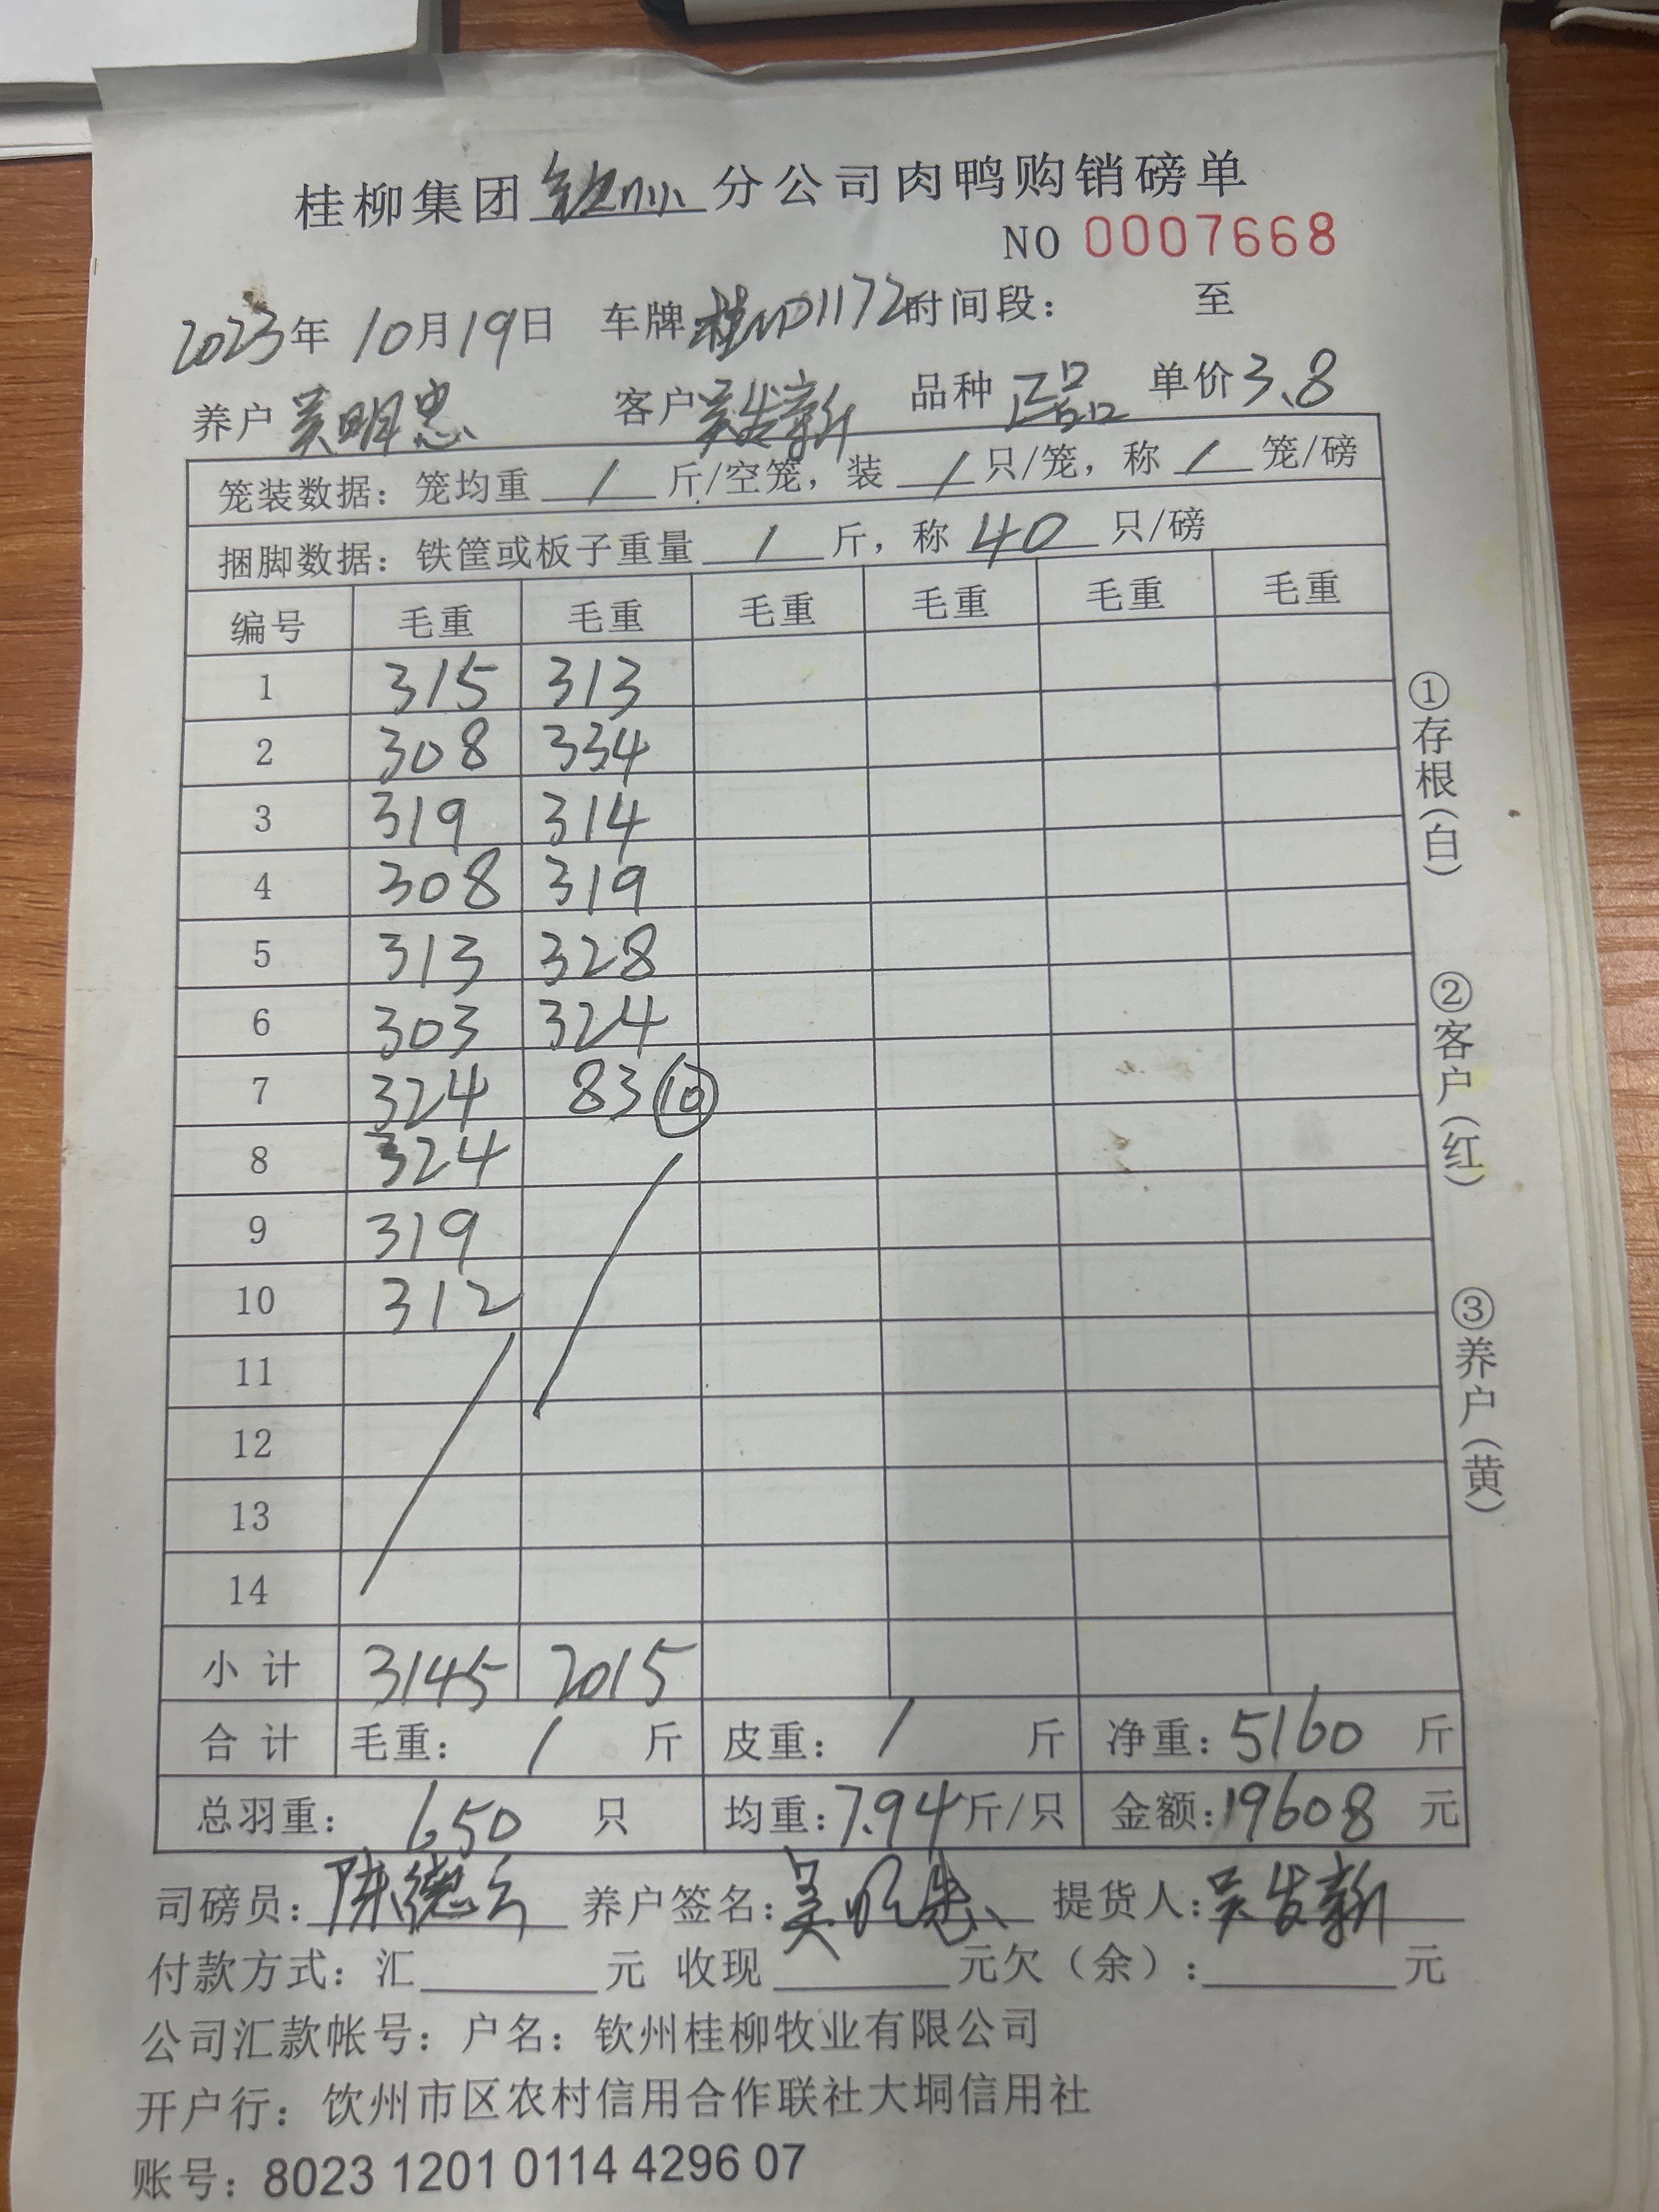 桂柳集团钦州分公司肉鸭购销磅单
NO 0007668
2023年10月19日 车牌桂ND1172时间段： 至
养户吴明忠 客户吴发新 品种正品 单价3.8
笼装数据：笼均重 / 斤/空笼，装 / 只/笼，称 / 笼/磅
捆脚数据：铁筐或板子重量 / 斤，称 40 只/磅
编号 毛重 毛重 毛重 毛重 毛重 毛重
1 315 313
2 308 334
3 319 314
4 308 319
5 313 328
6 303 324
7 324 83 ⑩
8 324
9 319
10 312
11
12
13
14
小计 3145 2015
合计 毛重： / 斤 皮重： / 斤 净重：5160 斤
总羽重： 650 只 均重：7.94斤/只 金额：19608 元
司磅员：陈德云 养户签名：吴明忠 提货人：吴发新
付款方式：汇 元 收现 元欠（余）： 元
公司汇款帐号：户名：钦州桂柳牧业有限公司
开户行：钦州市区农村信用合作联社大垌信用社
账号：8023 1201 0114 4296 07
①存根（白）
②客户（红）
③养户（黄）